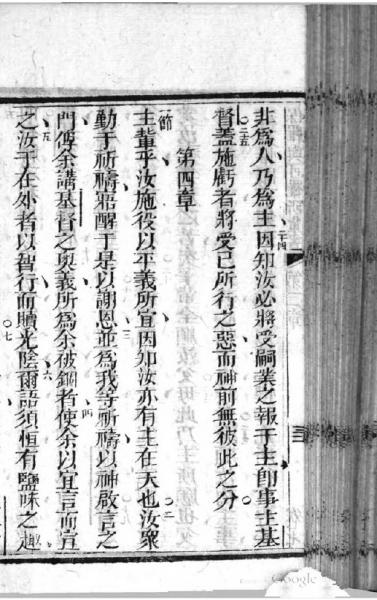 非爲人乃爲主因知汝必將受嗣業之報于主卽事主基
督蓋施虧者將受已所行之惡而神前無彼此之分
第四章
主輩乎汝施役以平義所宜因知汝亦有主在天也汝衆
勤于祈禱邪醒于是以謝恩並爲我等祈禱以神啟言之
門俾余講基督之奧義所爲余被鎖者使余以宜言而宣
之汝于在外者以智行而贖光陰爾語須恒有鹽味之趣
二四
○二五
一節
○二
三
四
五
六
○七
Google